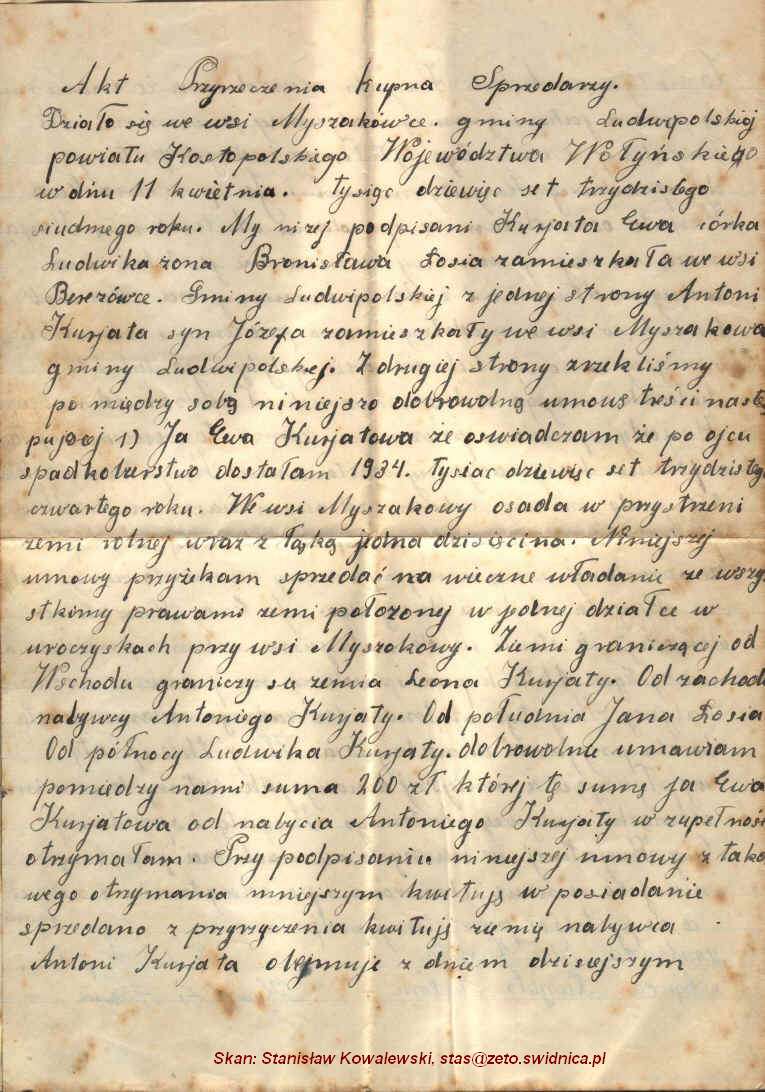 Akt Przyrzeczenia kupna Sprzedarzy.
Działo się we wsi Myszakówce. gminy Ludwipolskiój
powiatu Kostopolskiego Województwa Wołyńskiego
w dniu 11 kwietnia. tysiąc dziewięc set trzydzistego
siudmego roku. My nizej podpisani Kurjata Ewa córka
Ludwika żona Bronisława Łosia zamieszkała we wsi
Berezówce. Gminy Ludwipolskiej z jednej strony Antoni
Kurjata syn Józefa zamieszkały we wsi Myszakowa
gminy Ludwipolskiej. Z drugiej strony zrzekliśmy
po między sobą niniejszo dobrowolną umowę treści nastę
pującej 1) Ja Ewa Kurjatowa że oswiadczam że po ojcu
spadkobierstwo dostałam 1934. tysiac dziewięc set trzydzisteg
czwartego roku. We wsi Myszakowy osada w przystrzeni
zemi rolnej wraz z łąką jedna dzisięcina. Niniejszej
umowy przyżekam sprzedać na wieczne władanie ze wszy
stkimy prawami zemi położonej w jednej działce w
uroczyskach przy wsi Myszokowy. Ziemi graniczącej od
Wschodu graniczy su zemia Leona Kurjaty. Od zachodu
nabywcy Antoniego Kurjaty. Od południa Jana Łosia
Od północy Ludwika Kurjaty. dobrowolnie umawiam
pomiedzy nami suma 200 zł której tę sumę ja Ewa
Kurjatowa od nabycia Antoniego Kurjaty w zupełnośc
otrzymałam. Przy podpisaniu niniejszej umowy z tako
wego otrzymania mniejszym kwituję w posiadanie
sprzedano z przyrzyczenia kwituję ziemię nabywca
Antoni Kurjata obejmuje z dniem dzisiejszym
Skan: Stanisław Kowalewski, stas@zeto.swidnica.pl